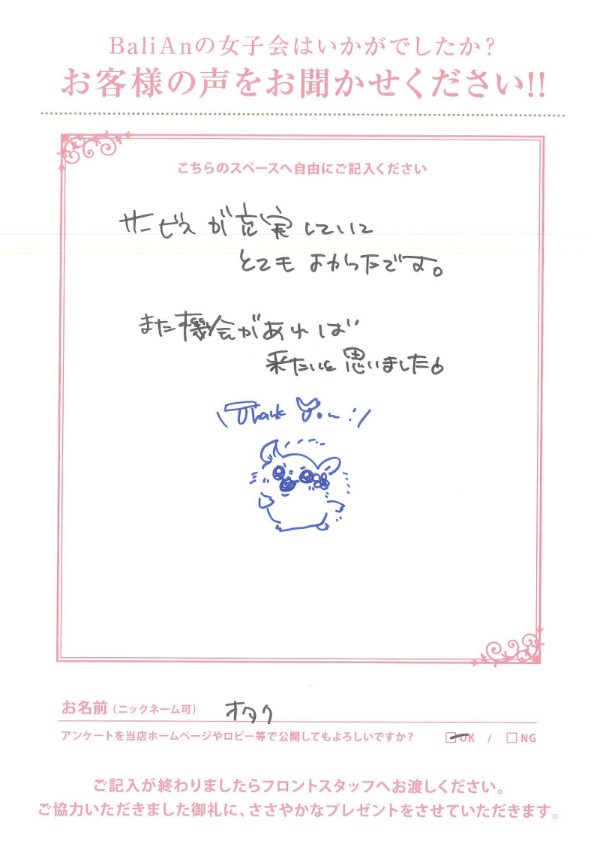 BaliAnの女子会はいかがでしたか？
お客様の声をお聞かせください!!
こちらのスペースへ自由にご記入ください
サービスが充実していて
とてもよかったです。
また機会があれば
来たいと思いました。
\Thank You!/
お名前（ニックネーム可） オタク
アンケートを当店ホームページやロビー等で公開してもよろしいですか？ ☑OK / □NG
ご記入が終わりましたらフロントスタッフへお渡しください。
ご協力いただきました御礼に、ささやかなプレゼントをさせていただきます。